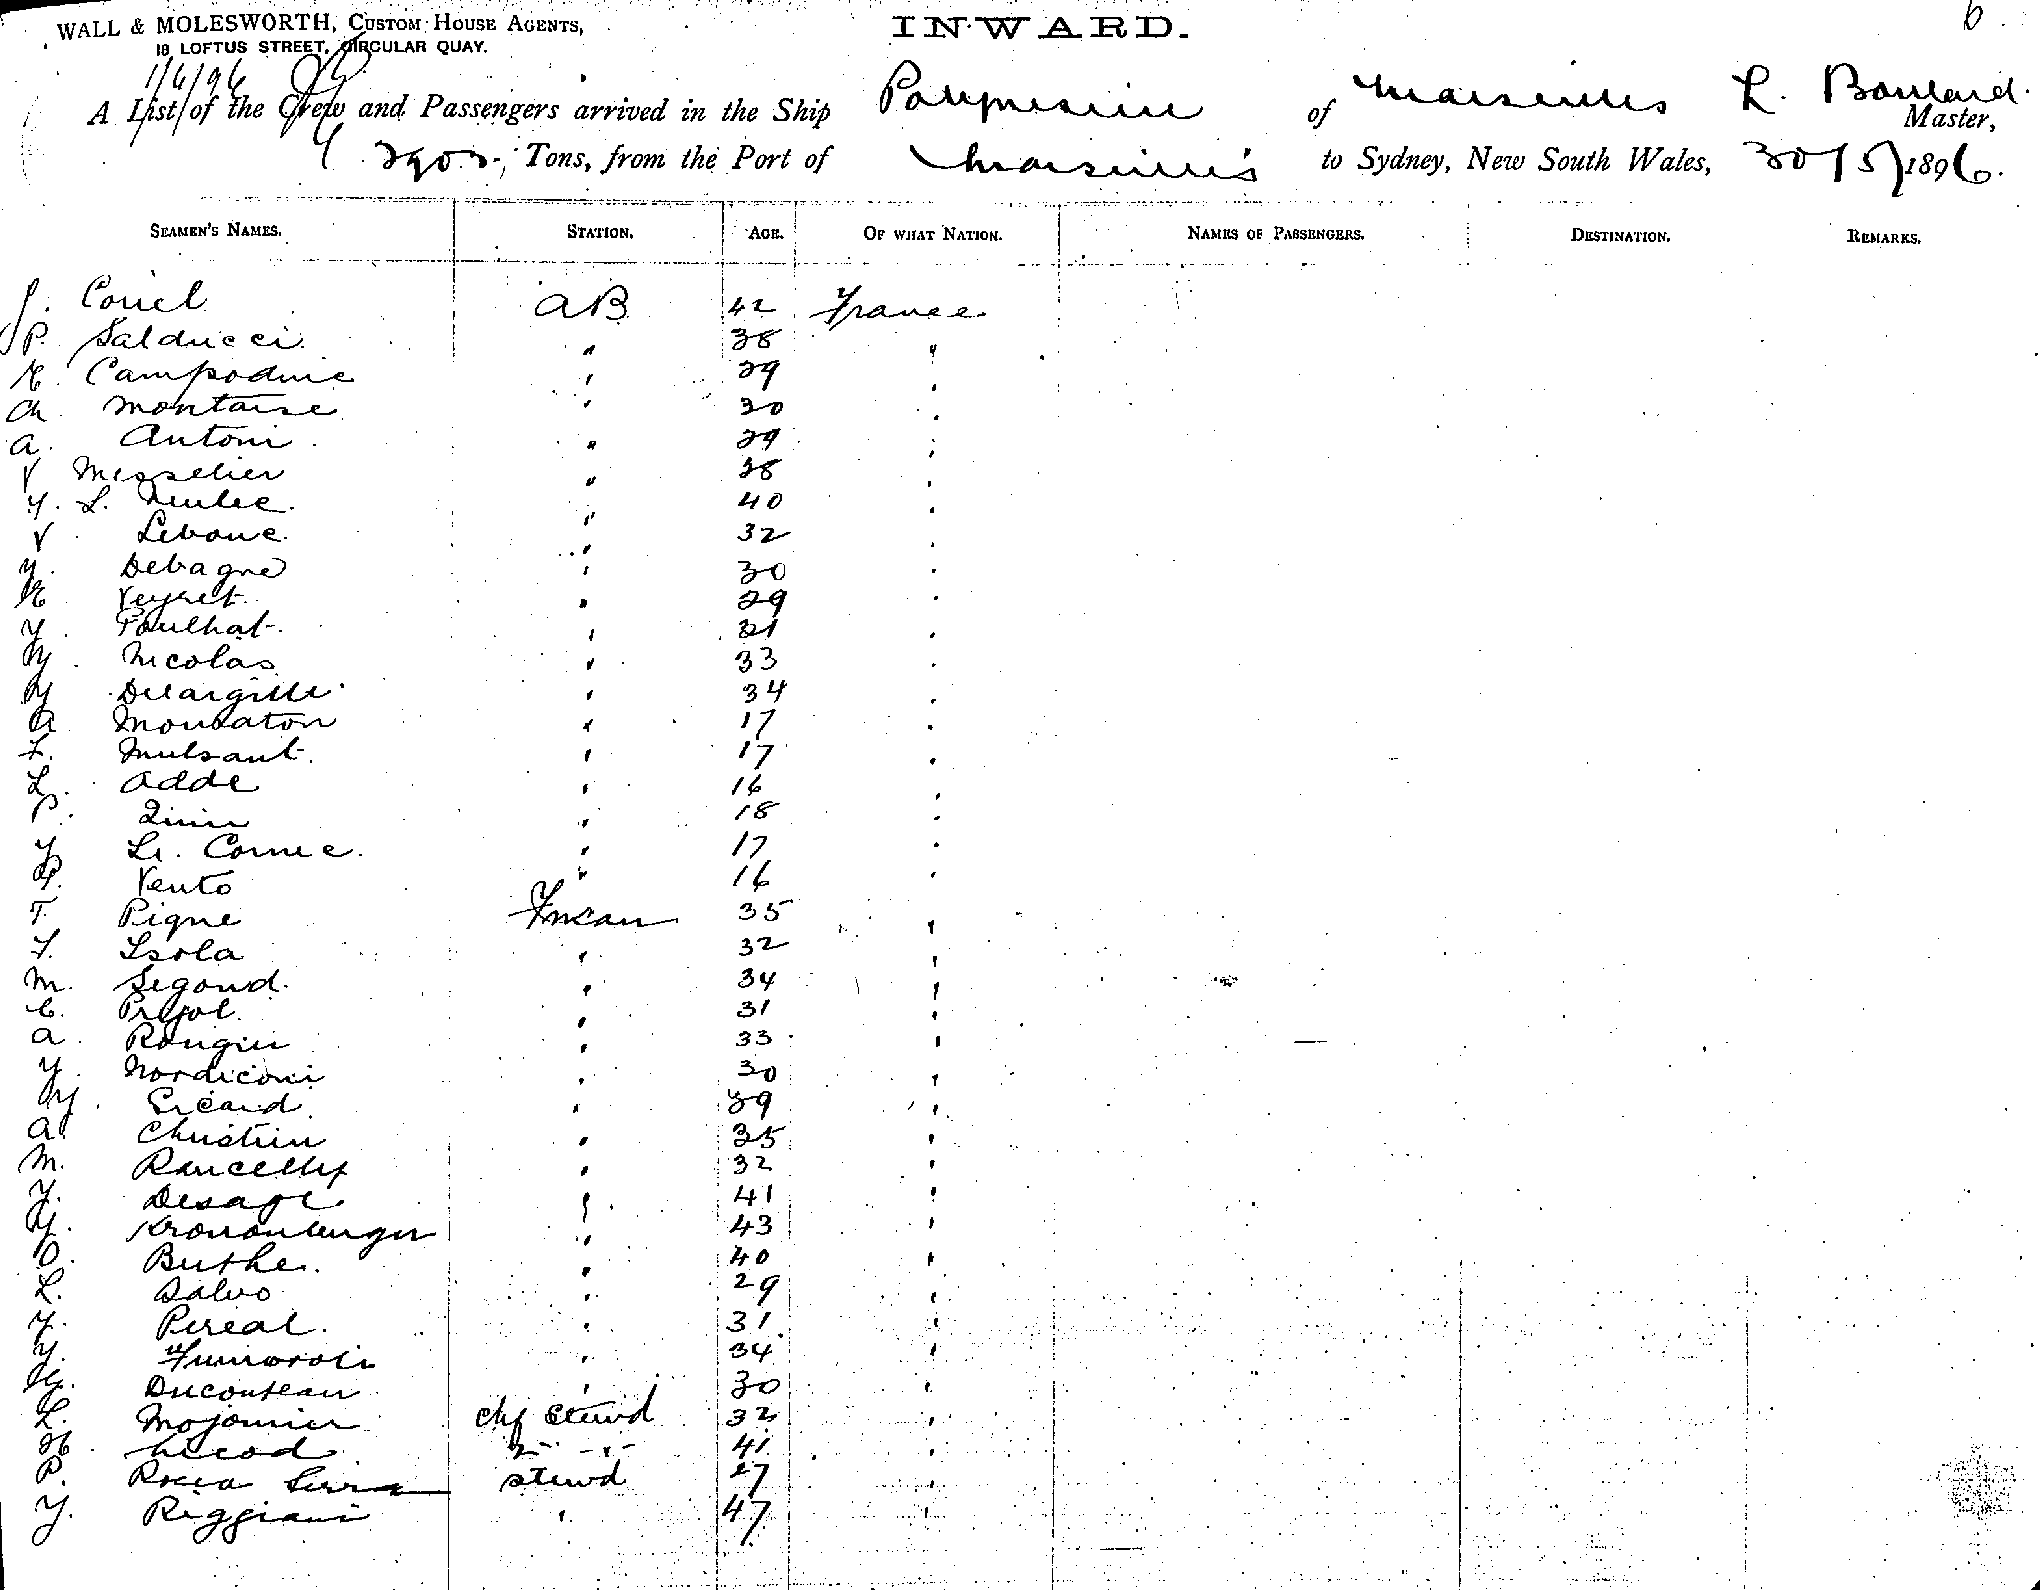 WALL & MOLESWORTH, CUSTOM HOUSE AGENTS,
18 LOFTUS STREET, CIRCULAR QUAY.
INWARD.
6
1/6/96
A List of the Crew and Passengers arrived in the Ship Polynesien of Marseilles L. Boulard Master,
2902 Tons, from the Port of Marseilles to Sydney, New South Wales, 30/5/1896.
SEAMEN'S NAMES. STATION. AGE. OF WHAT NATION. NAMES OF PASSENGERS. DESTINATION. REMARKS.
J. Couel AB 42 France
P. Salducci " 38 "
Campodmie " 29 "
Ch. Montaise " 30 "
A. Antoni " 29 "
V Messelier " 38 "
Y. L. " 40 "
V Lebouc " 32 "
Y. Debagne " 30 "
E Veyret " 29 "
Y. Paulhat " 21 "
Y. Nicolas " 33 "
Y " 34 "
A Monsaton " 17 "
F. Mulsant " 17 "
L. Adde " 16 "
P. " 18 "
Y Le Cornec " 17 "
P. Vento " 16 "
T. Pigne Fireman 35 "
F. Isola " 32 "
M. Segond " 34 "
C. Pujol " 31 "
A. Rougin " 33 "
Y. Nordiconi " 30 "
Y. Sicard " 39 "
A. Christin " 35 "
M. " 32 "
Y. Desage " 41 "
Y. Kronenberger " 43 "
O. Buthe " 40 "
L. Salvo " 29 "
Y. Pereal " 31 "
Y. Fumaroli " 34 "
Ducouteau " 30 "
L. Mojonnier Chf Stewd 32 "
H. Nicod 2 - " - 41 "
P. Rocca Serra Stewd 27 "
Y. Reggiani " 47 "